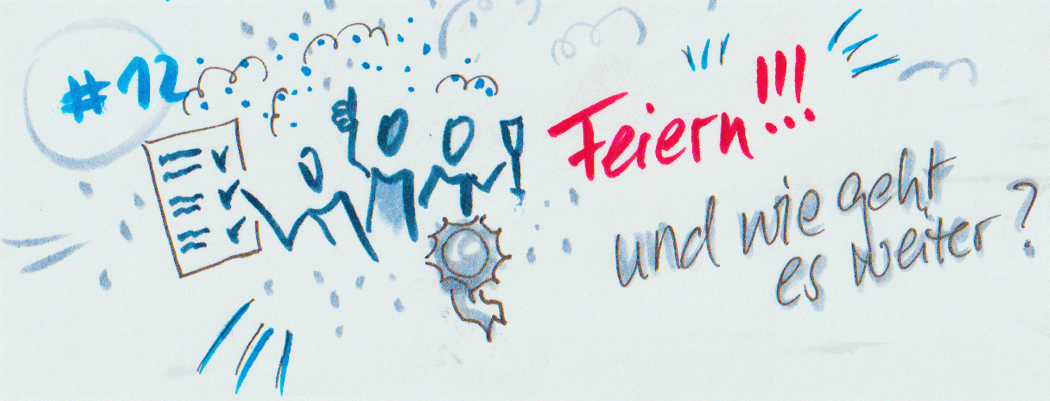 #12
Feiern!!!
und wie geht
es weiter?